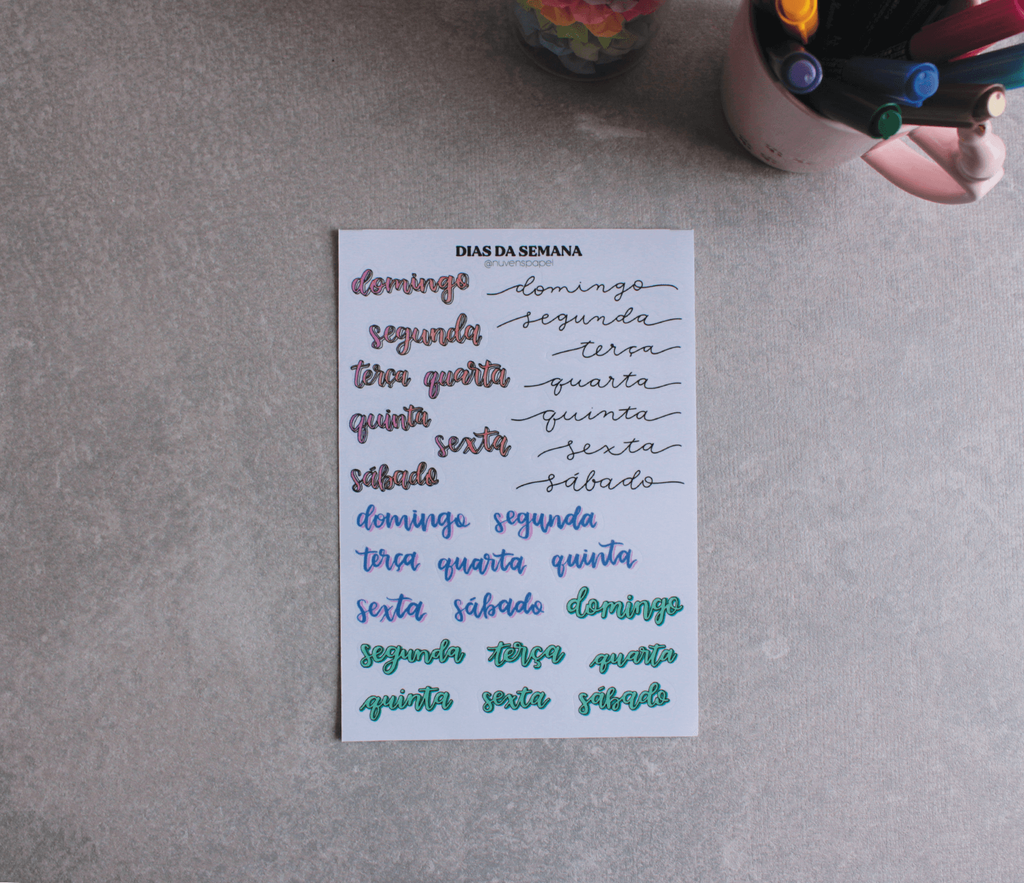 DIAS DA SEMANA
@nuvenspapel
domingo domingo
segunda segunda
terça
terça quarta quarta
quinta quinta
sexta sexta
sábado sábado
domingo segunda
terça quarta quinta
sexta sábado domingo
segunda terça quarta
quinta sexta sábado